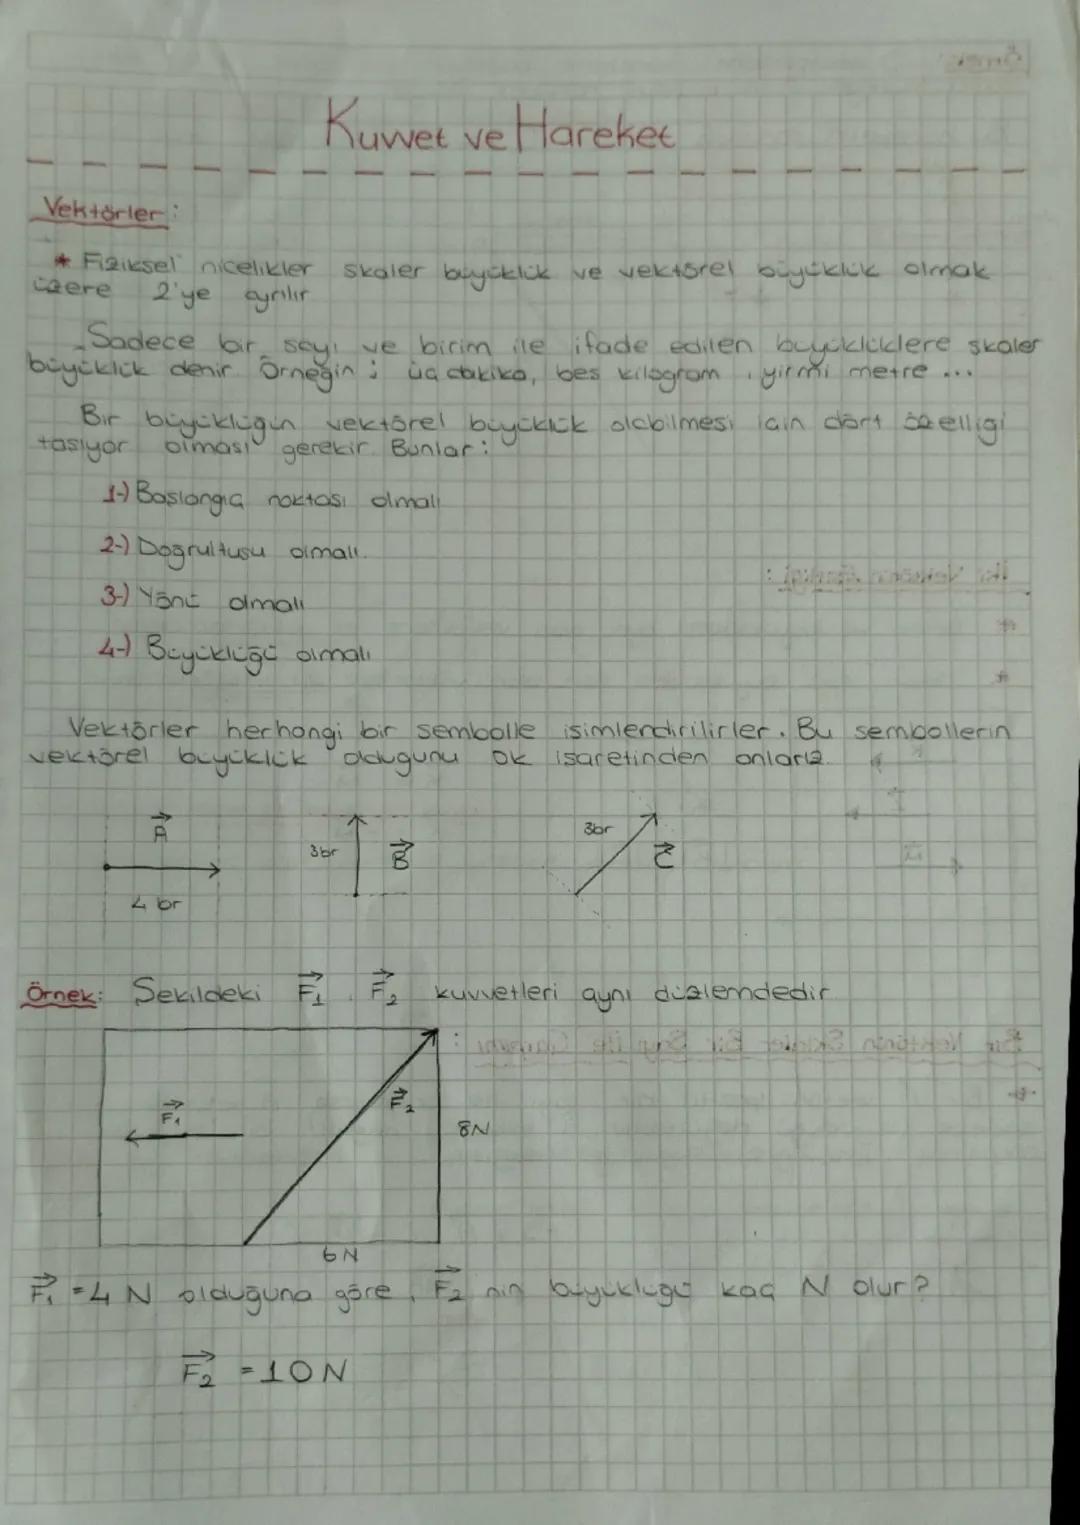 Kuvvet ve Hareket
Vektörler:
* Fiziksel nicelikler skaler büyüklük ve vektörel büyüklük olmak
üzere 2'ye ayrılır
Sadece bir sayı ve birim ile ifade edilen büyüklüklere skaler
büyüklük denir. Örneğin; üç dakika, beş kilogram, yirmi metre ...
Bir büyüklüğün vektörel büyüklük olabilmesi için dört özelliği
taşıyor olması gerekir. Bunlar:
1-) Başlangıç noktası olmalı
2-) Doğrultusu olmalı.
3-) Yönü olmalı
4-) Büyüklüğü olmalı
Vektörler herhangi bir sembolle isimlendirilirler. Bu sembollerin
vektörel büyüklük olduğunu ok işaretinden anlarız.
A⃗
3br B⃗
3br C⃗
4 br
Örnek: Şekildeki F⃗₁, F⃗₂ kuvvetleri aynı düzlemdedir.
F⃗₁
F⃗₂
8N
6N
F⃗₁ = 4 N olduğuna göre, F⃗₂ nin büyüklüğü kaç N olur?
F⃗₂ = 10N